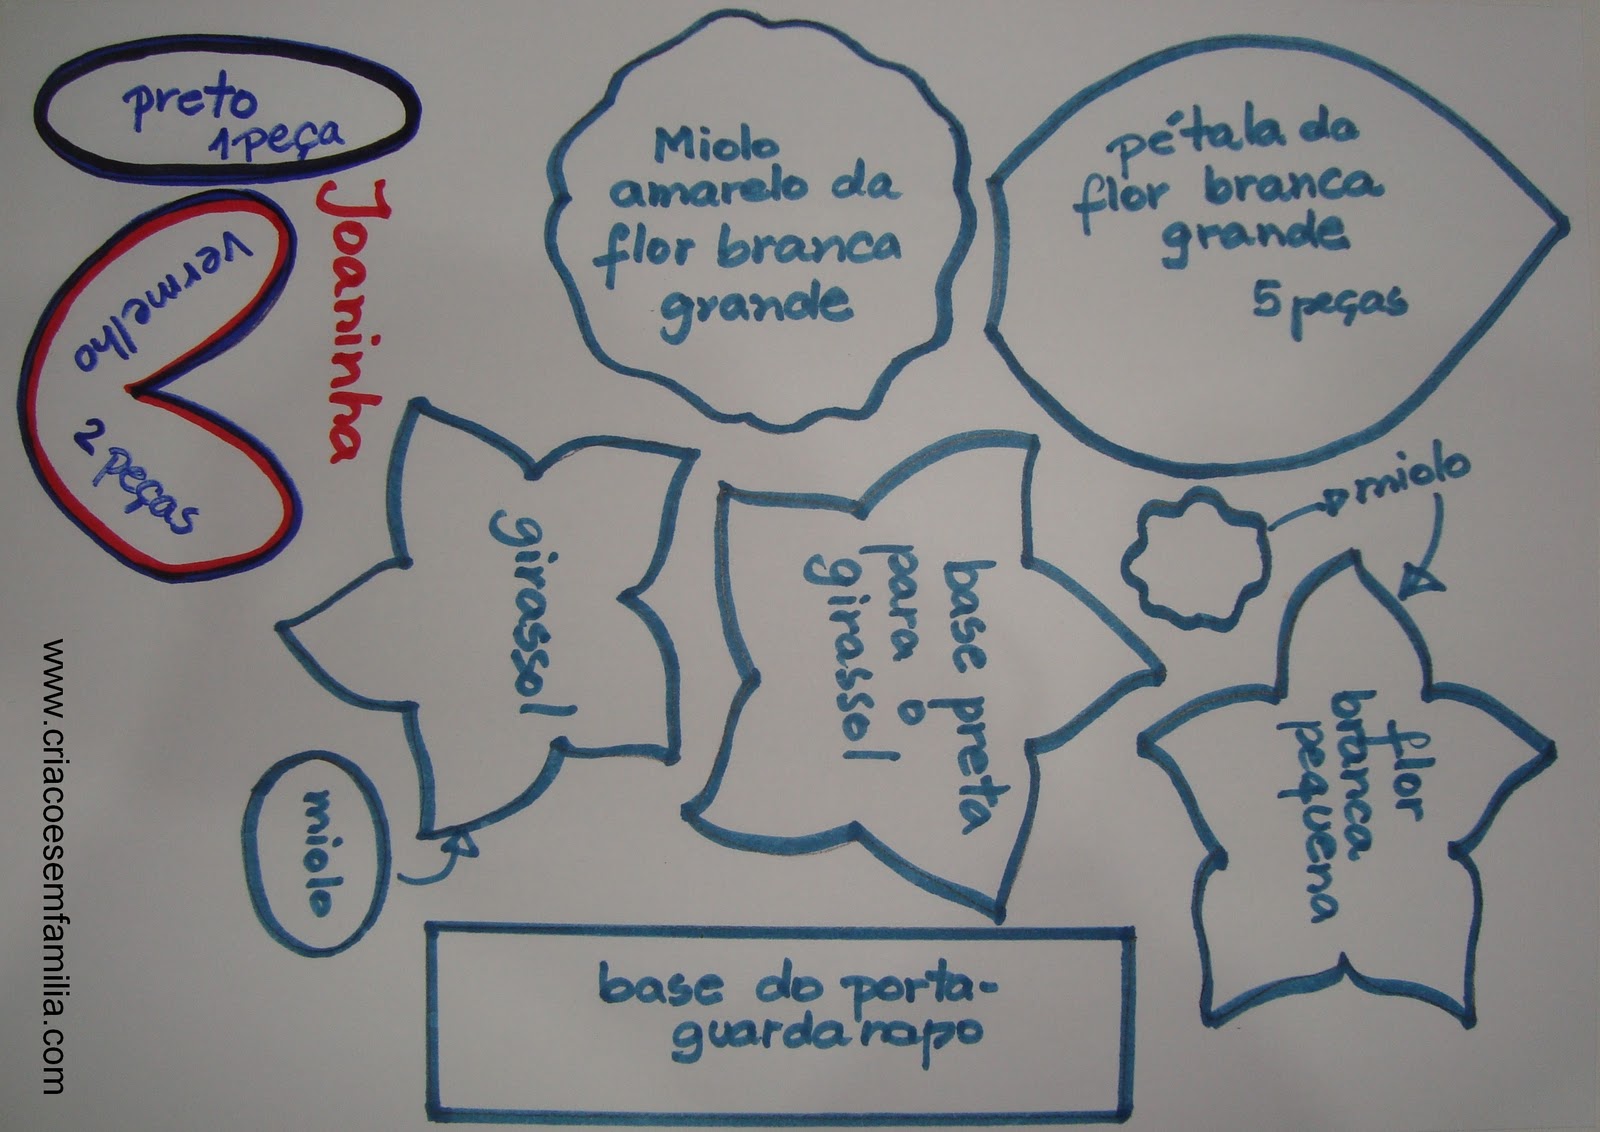 preto
1 peça
Joaninha
vermelho
2 peças
Miolo
amarelo da
flor branca
grande
pétala da
flor branca
grande
5 peças
girassol
miolo
base preta
para
o
girassol
miolo
flor
branca
pequena
base do porta-
guardanapo
www.criacoesemfamilia.com